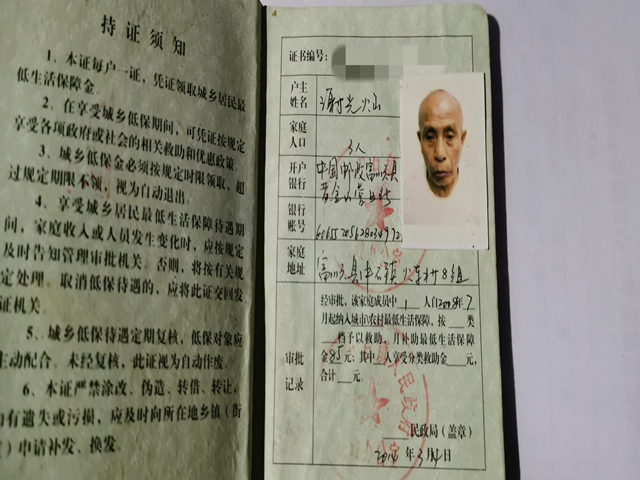 持证须知
1、本证每户一证，凭证领取城乡居民最
低生活保障金。
2、在享受城乡低保期间，可凭证按规定
享受各项政府或社会的相关救助和优惠政策。
3、城乡低保金必须按规定时限领取，超
过规定期限不领，视为自动退出。
4、享受城乡居民最低生活保障待遇期
间，家庭收入或人员发生变化时，应按规定
及时告知管理审批机关。否则，将按有关规
定处理。取消低保待遇的，应将此证交回发
证机关。
5、城乡低保待遇定期复核，低保对象应
主动配合。未经复核，此证视为自动作废。
6、本证严禁涂改、伪造、转借、转让，
如有遗失或污损，应及时向所在地乡镇（街
）申请补发、换发。
证书编号：
户主
姓名
谢光灿
家庭
人口
3人
开户
银行
中国邮政富顺县
营业
银行
账号
家庭
地址
富顺县 镇 村8组
经审批，该家庭成员中1人自2018年7
月起纳入城市\农村最低生活保障，按 类
档予以救助，月补助最低生活保障
金85元；其中 人享受分类救助金 元，
合计 元。
审批
记录
民政局（盖章）
年3月4日